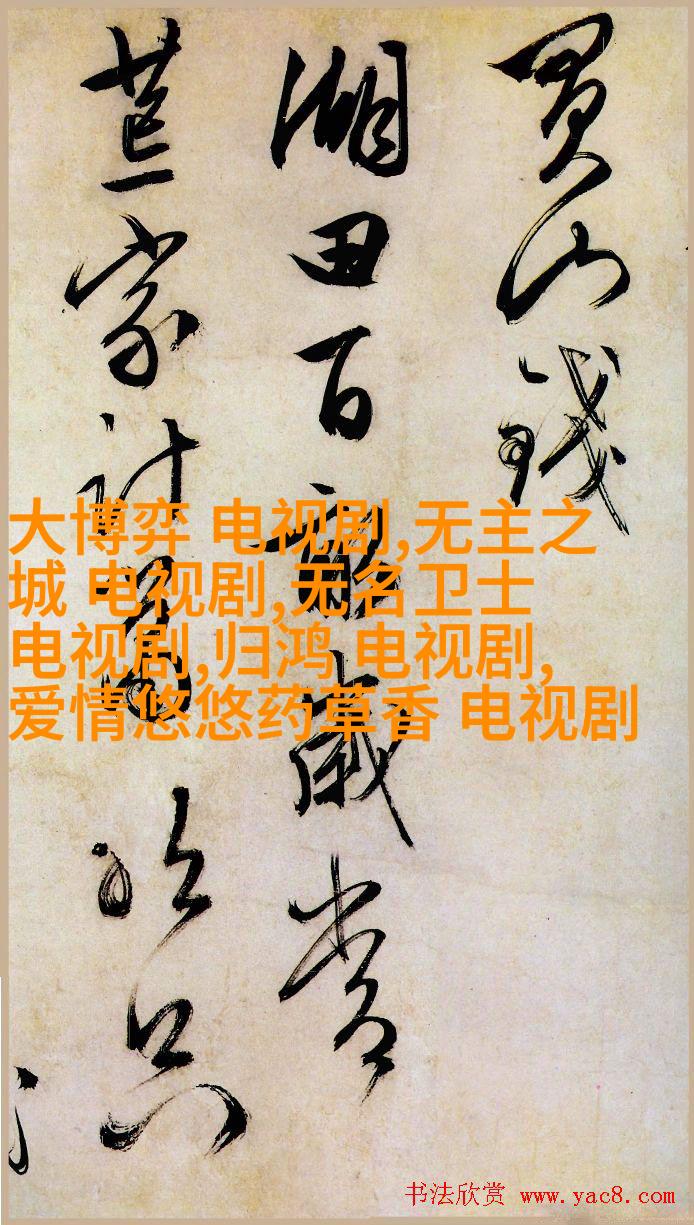 買山錢
湖田百畝歲常
荒家計
大博弈 电视剧,无主之
城 电视剧,无名卫士
电视剧,归鸿 电视剧,
爱情悠悠药草香 电视剧
书法欣赏 www.yac8.com